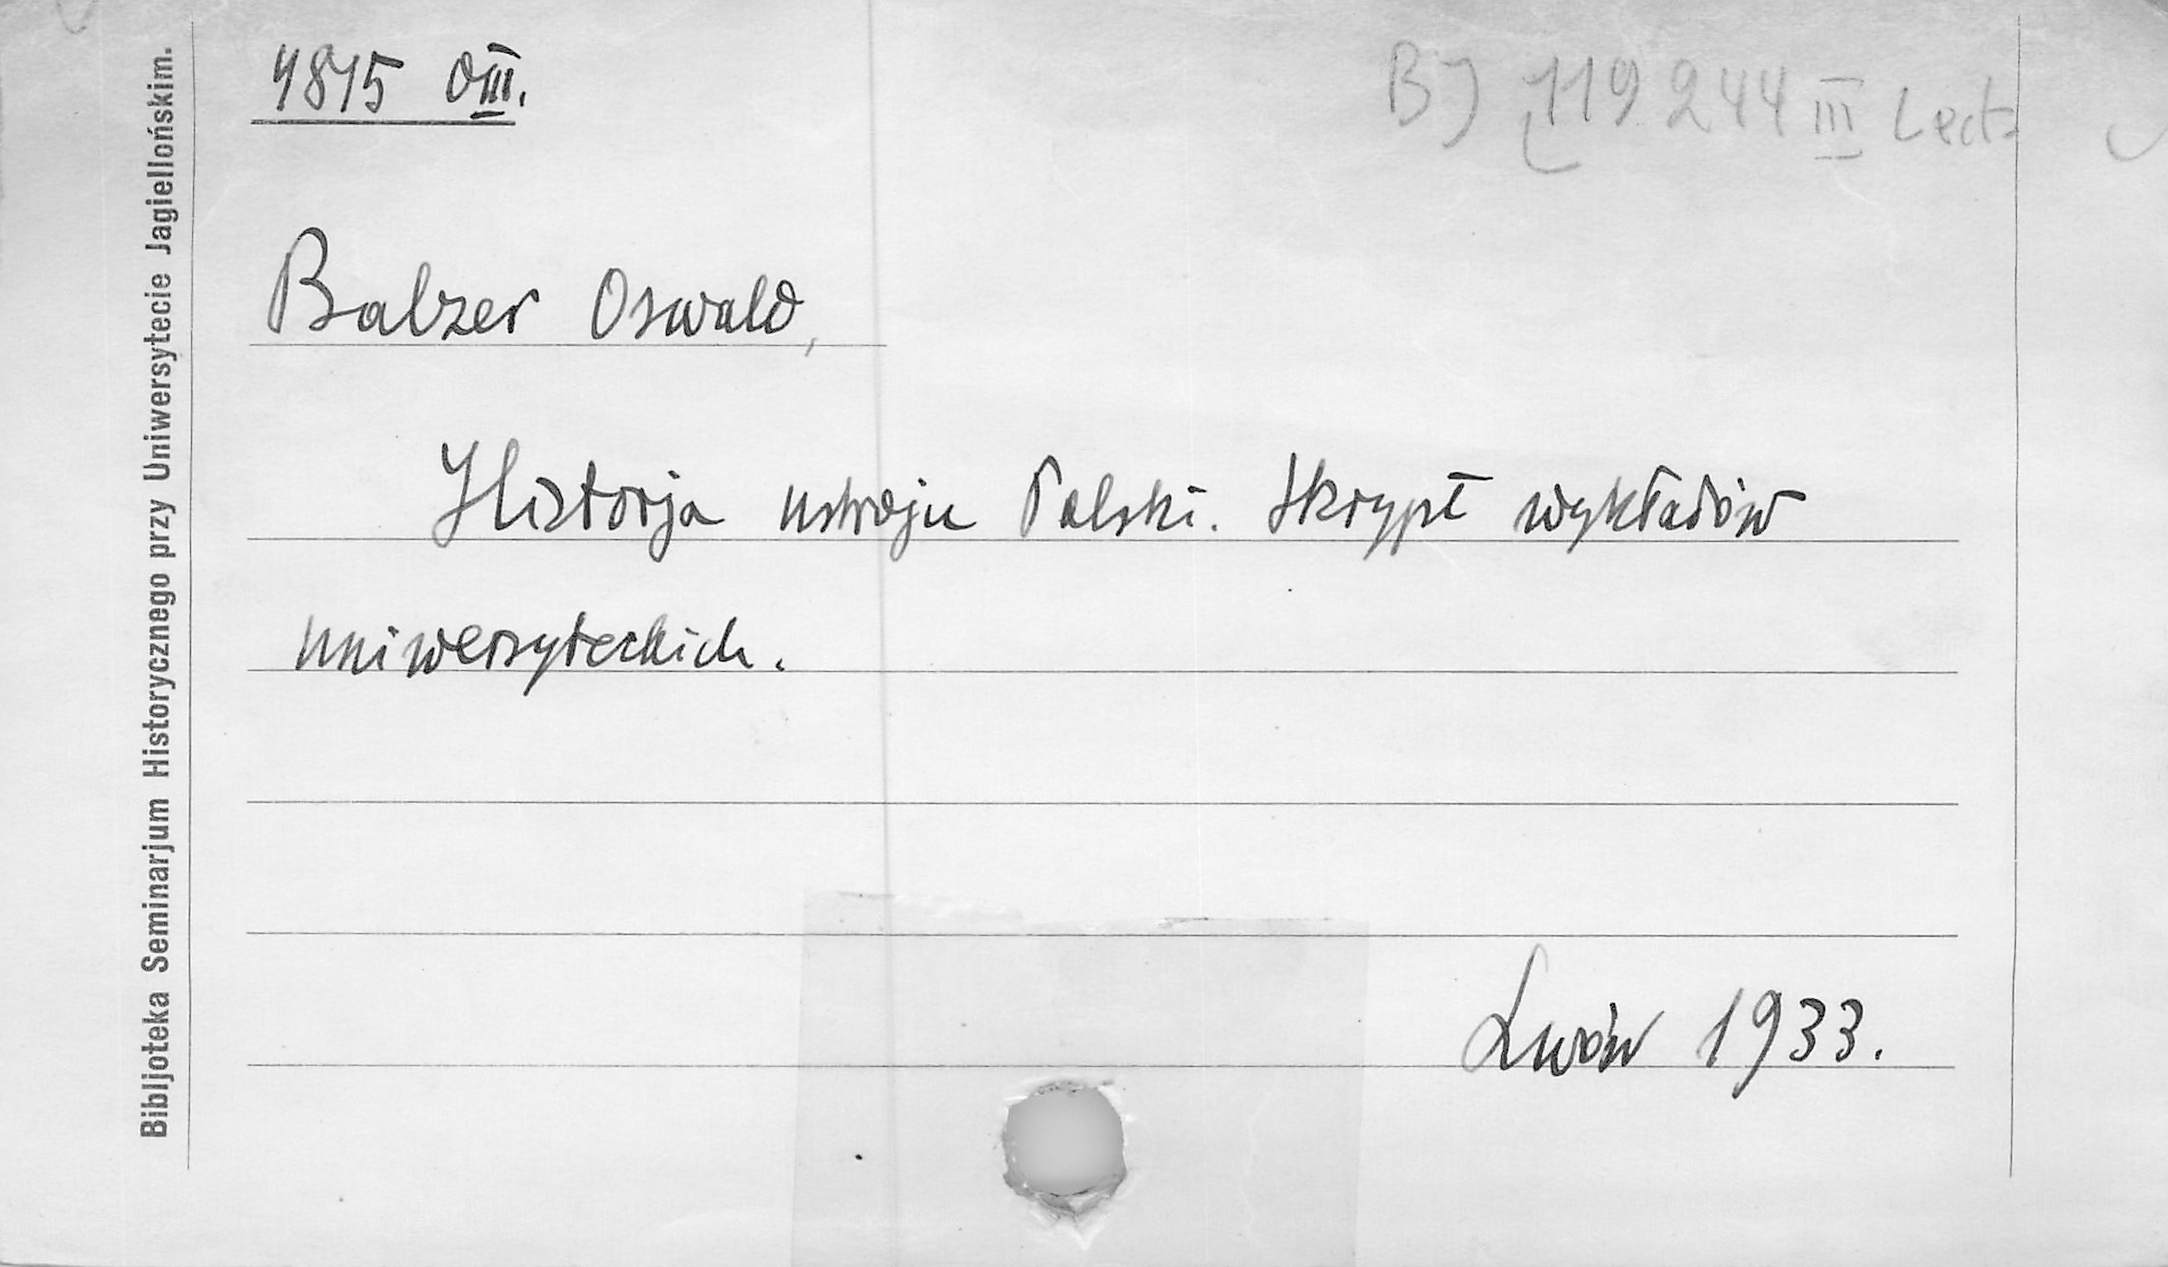 4815 OIII.
BJ 119 244 III Lect
Balzer Oswald,
Historja ustroju Polski. Skrypt wykładów
uniwersyteckich.
Lwów 1933.
Bibljoteka Seminarjum Historycznego przy Uniwersytecie Jagiellońskim.